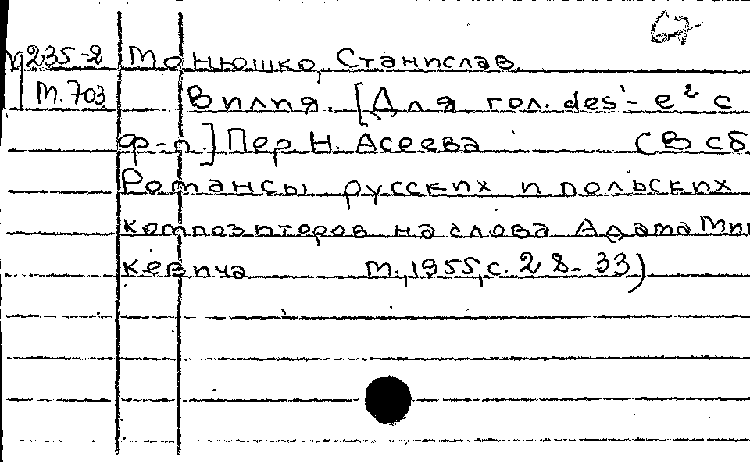 67
М235-2 Монюшко, Станислав.
М.703 Вилия. [Для гол. des'-e² с
ф-п.] Пер. Н. Асеева (В сб
Романсы русских и польских
композиторов на слова Адама Миц
кевича М., 1955, с. 28-33)